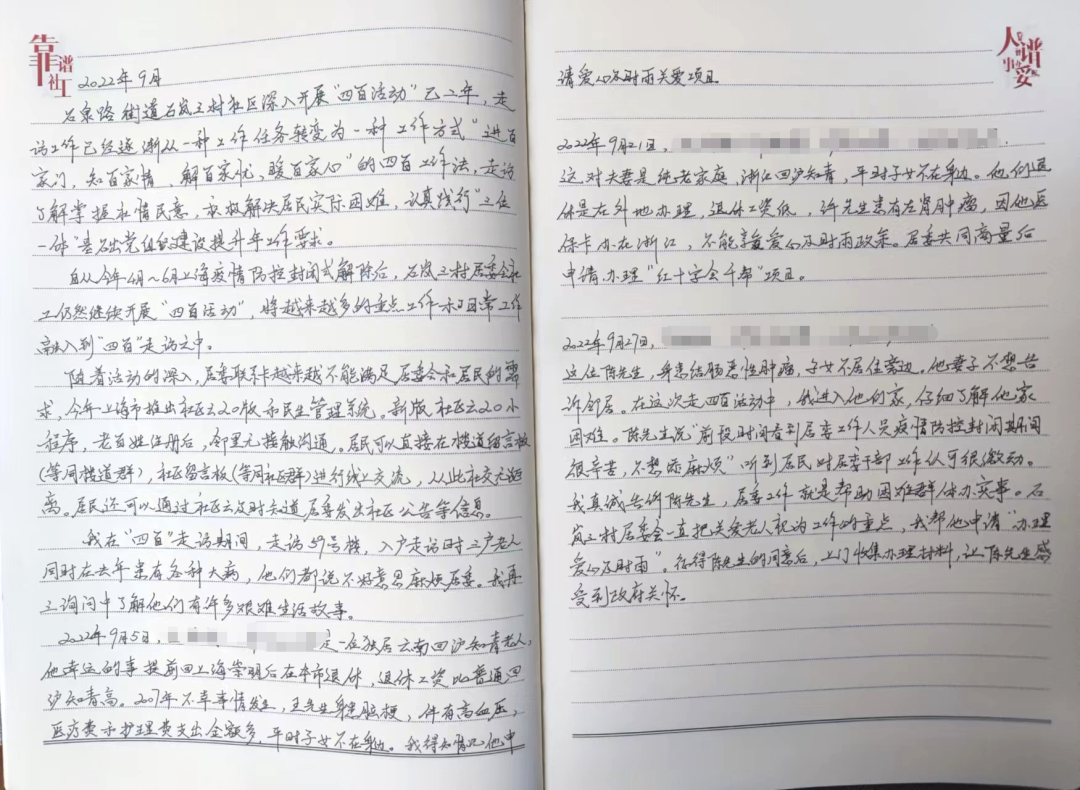 靠谱社工
2022年9月
石泉路街道石岚三村社区深入开展“四百活动”已二年，走
访工作已经逐渐从一种工作任务转变为一种工作方式“进百
家门，知百家情，解百家忧，暖百家心”的四百工作法，走访
了解掌握社情民意，积极解决居民实际困难，认真践行“三位
一体”基础党组织建设提升年工作要求。
自从今年4月～6月上海疫情防控封闭式解除后，石岚三村居委会社
工仍然继续开展“四百活动”，将越来越多的重点工作和日常工作
融入到“四百”走访之中。
随着活动的深入，居委联系卡越来越不能满足居委会和居民的需
求，今年上海市推出社区云2.0版和民生管理系统。新版社区云2.0小
程序，老百姓注册后，邻里无接触沟通。居民可以直接在楼道留言板
（等同楼道群），社区留言板（等同社区群）进行线上交流，从此社交无距
离。居民还可以通过社区云及时知道居委发出社区公告等信息。
我在“四百”走访期间，走访59号楼，入户走访时三户老人
同时在去年患有各种大病，他们都说不好意思麻烦居委。我再
三询问中了解他们有许多艰难生活故事。
2022年9月5日，是一位独居云南回沪知青老人，
他幸运的事提前回上海崇明后在本市退休，退休工资比普通回
沪知青高。不幸事情发生，王先生身患脑梗，伴有高血压，
医疗费和护理费支出金额多，平时子女不在身边。我得知情况他申
人谱事爱
请爱心及时雨关爱项目
2022年9月21日，
这对夫妻是纯老家庭，浙江回沪知青，平时子女不在身边。他们退
休是在外地办理，退休工资低，许先生患有左肾肿瘤，因他医
保卡办在浙江，不能享受爱心及时雨政策。居委共同商量后
申请办理“红十字会千万帮”项目。
2022年9月27日，
这位陈先生，身患结肠恶性肿瘤，子女不居住旁边。他妻子不想告
诉邻居。在这次走四百活动中，我进入他们家，仔细了解他家
困难。陈先生说“前段时间看到居委工作人员疫情防控封闭期间
很辛苦，不想添麻烦”听到居民对居委干部工作认可很激动。
我真诚告诉陈先生，居委工作就是帮助困难群体办实事。石
岚三村居委会一直把关爱老人视为工作的重点，我帮他申请“办理
爱心及时雨”。征得陈先生的同意后，上门收集办理材料，让陈先生感
受到政府关怀。